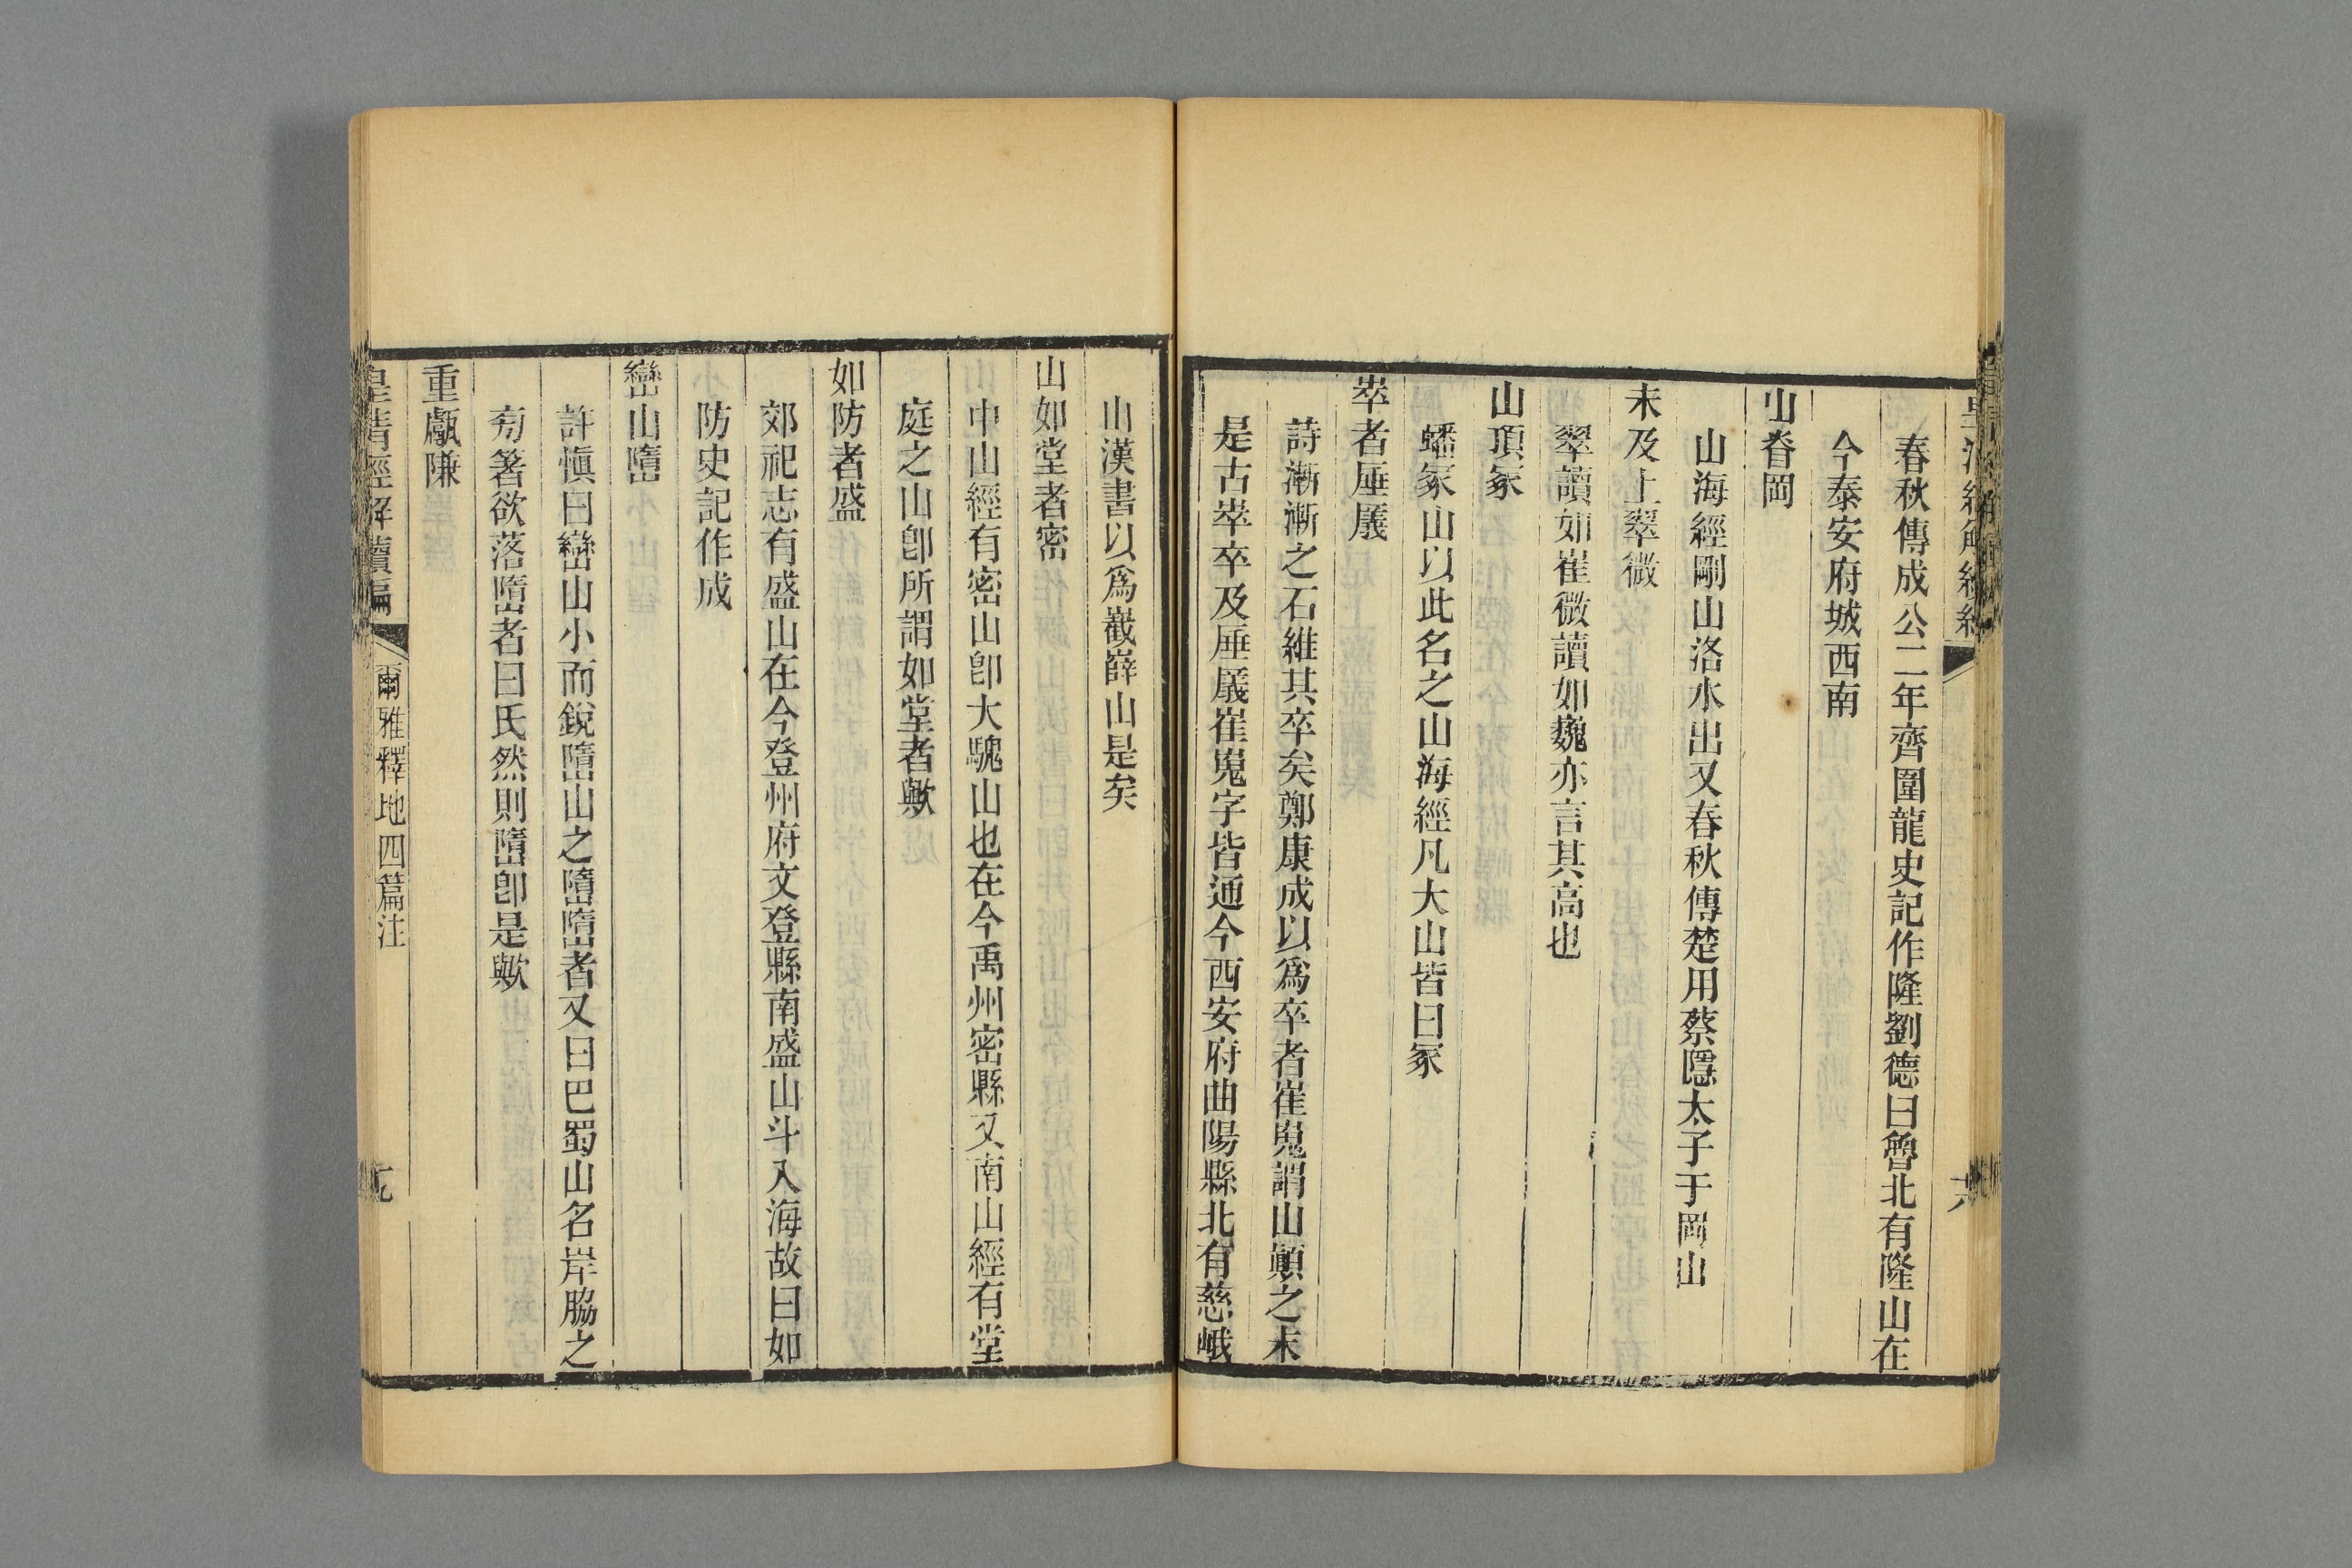 春秋傳成公二年齊圍龍史記作隆劉德曰魯北有隆山在
今泰安府城西南
山脊岡
山海經剛山洛水出又春秋傳楚用蔡隱太子于岡山
未及上翠微
翠讀如崔微讀如巍亦言其高也
山頂冢
蟠冢山以此名之山海經凡大山皆曰冢
崒者厜㕒
詩漸漸之石維其卒矣鄭康成以爲卒者崔嵬謂山顚之末
是古崒卒及厜㕒崔嵬字皆通今西安府曲陽縣北有慈峨
山漢書以爲巀嶭山是矣
山如堂者密
中山經有密山卽大騩山也在今禹州密縣又南山經有堂
庭之山卽所謂如堂者歟
如防者盛
郊祀志有盛山在今登州府文登縣南盛山斗入海故曰如
防史記作成
巒山嶞
許愼曰巒山小而銳嶞山之嶞嶞者又曰巴蜀山名岸脇之
㫄箸欲落嶞者曰氏然則嶞卽是歟
重甗隒
皇清經解續編
爾雅釋地四篇注